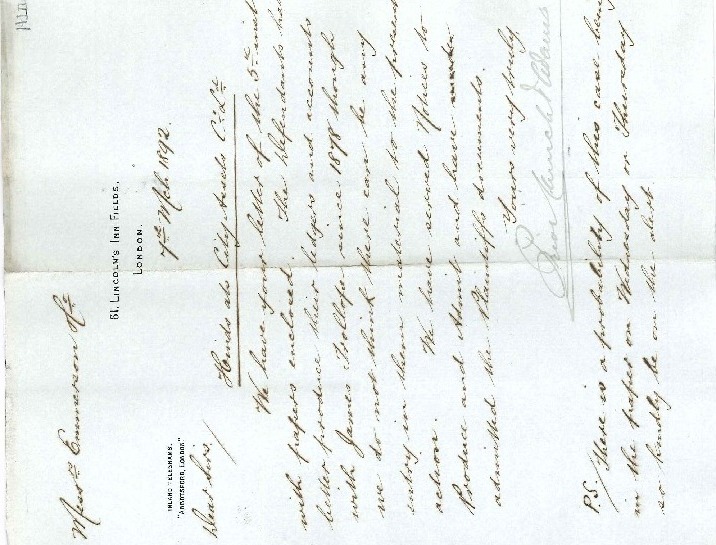 Messrs Emmerson & Co
61, LINCOLN'S INN FIELDS,
LONDON.
INLAND TELEGRAMS.
"ABBOTSFORD, LONDON."
7th Mch 1892.
Dear Sirs,
Hinds ats City &c Co. Ld
We have your letter of the 5th inst
with papers enclosed. The Defendants had
better produce their ledgers and accounts
with James Trollope since 1878 though
we do not think there can be any
entry in them material to the present
action. We have served Notices to
Produce and Admit and have
admitted the Plaintiffs documents.
Yours very truly
P.S. There is a probability of this case being
in the paper on Wednesday or Thursday
so kindly be on the alert